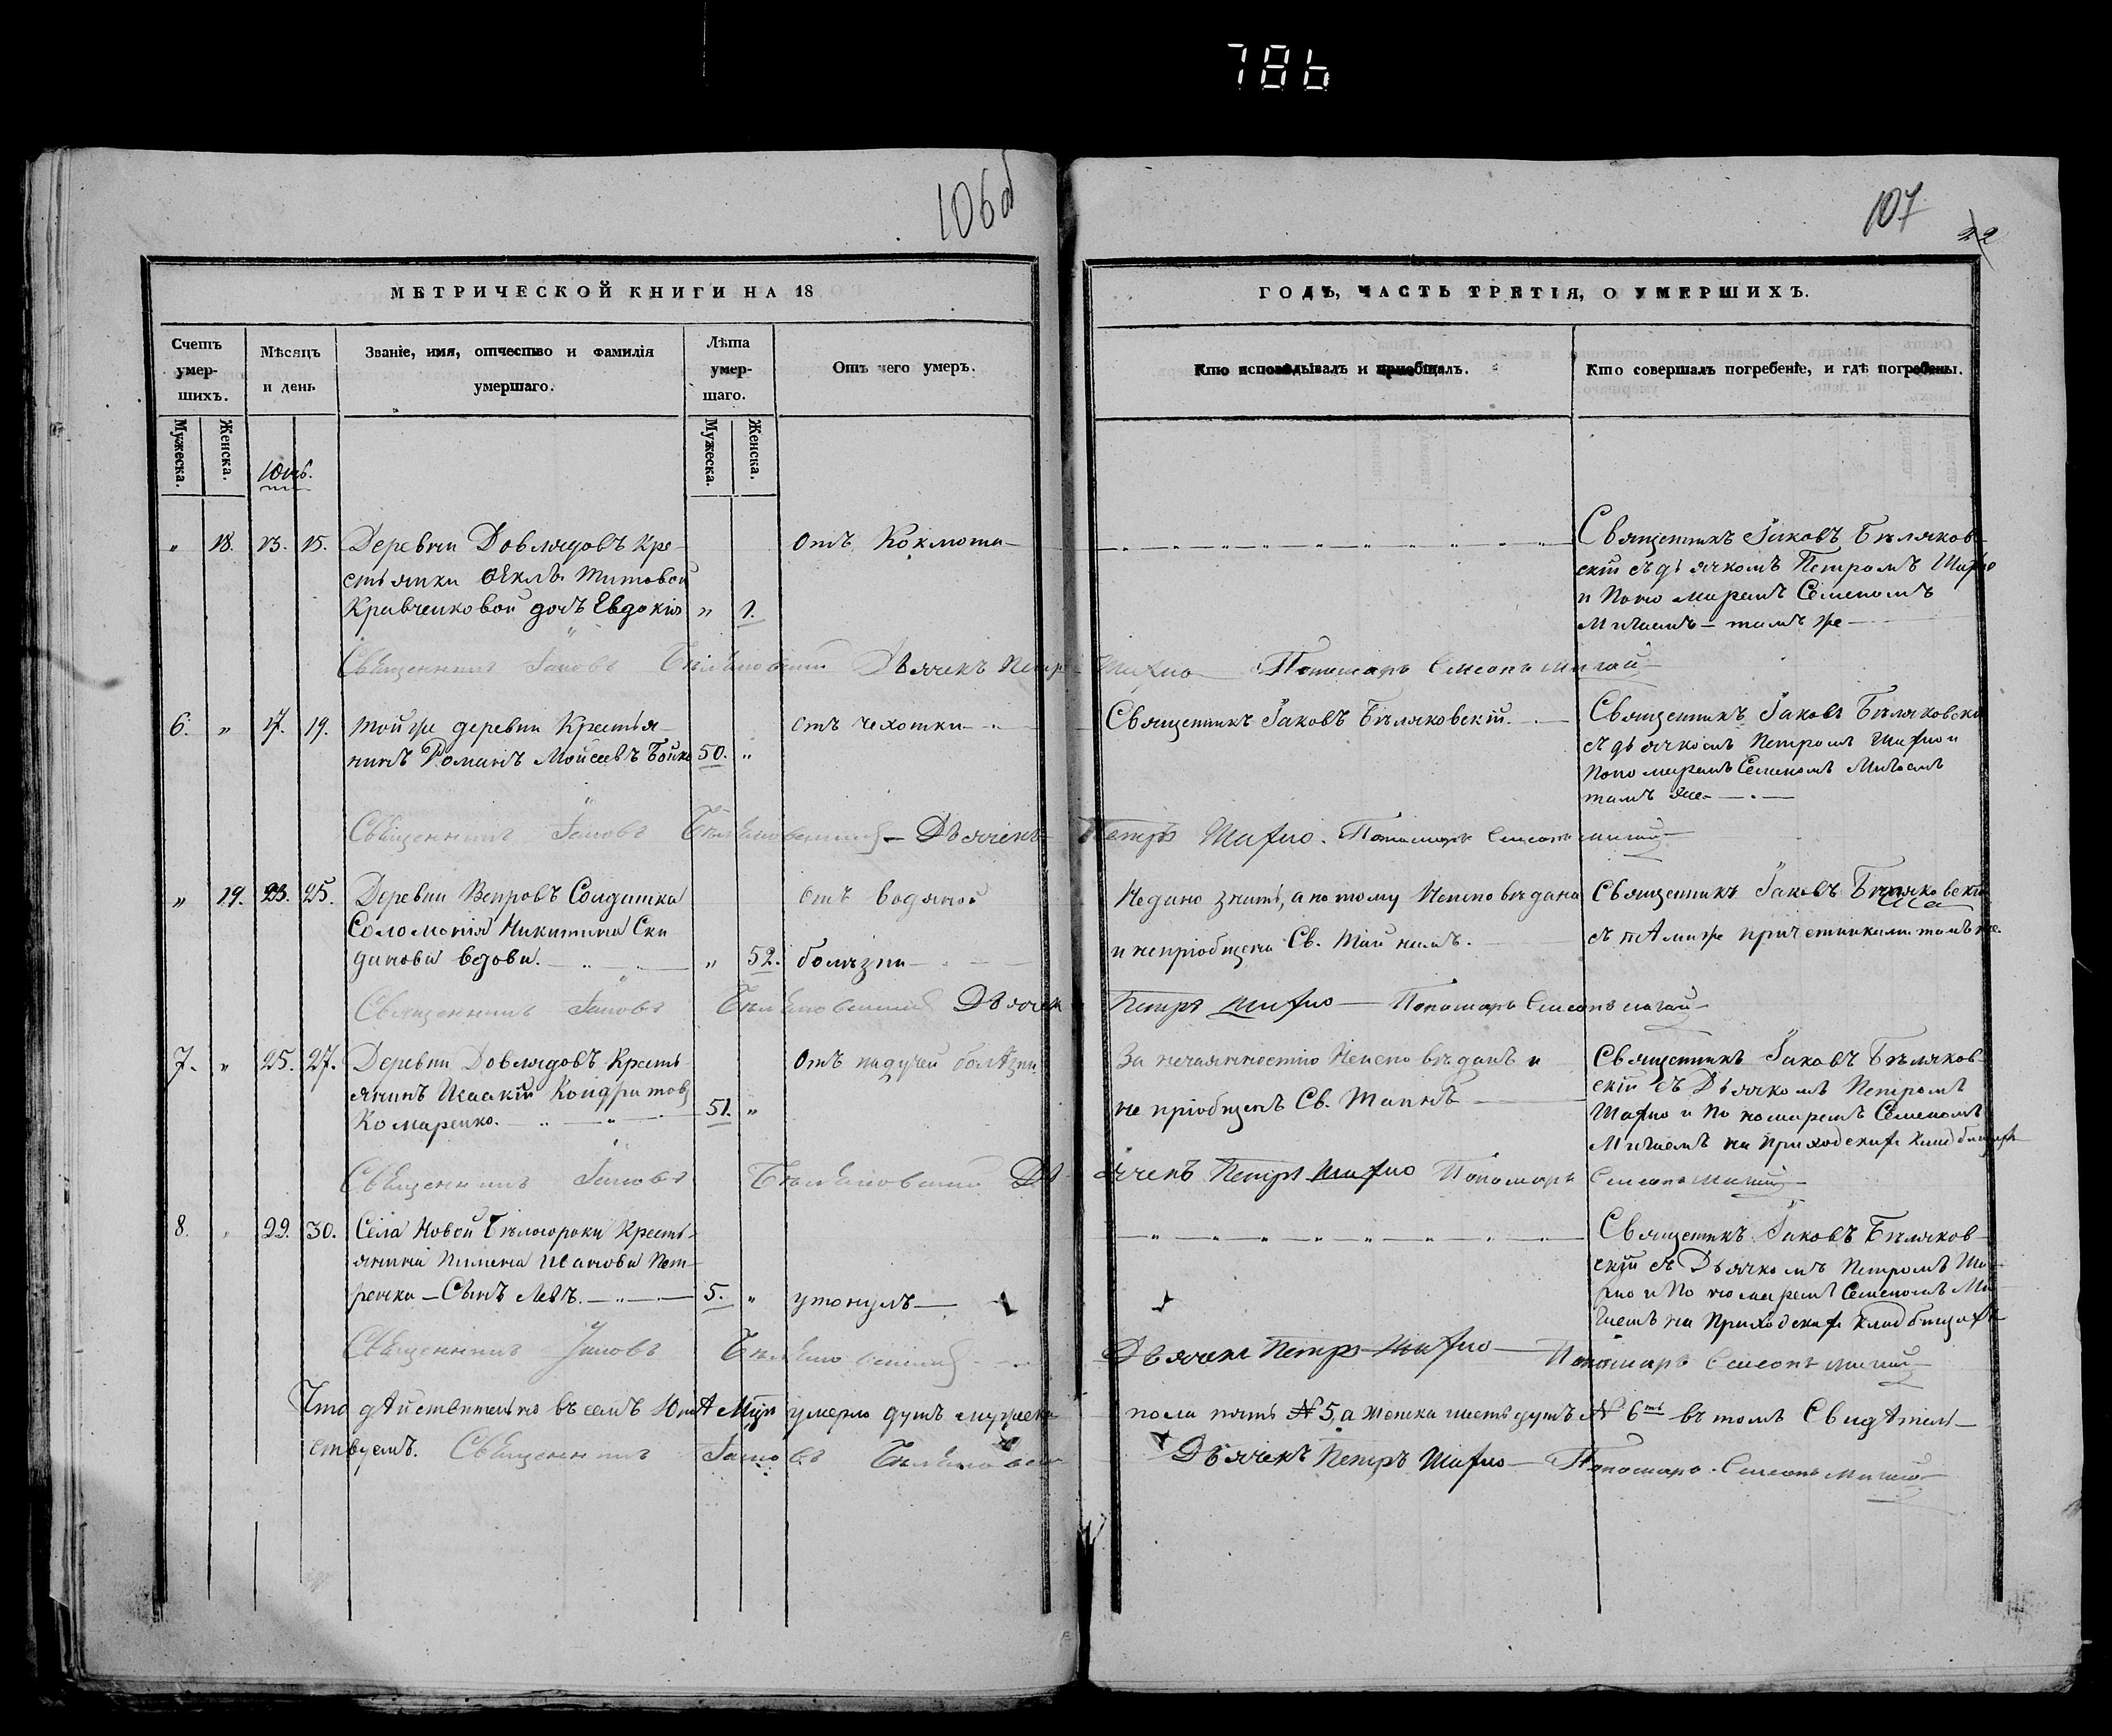 786
106об
107
22
МЕТРИЧЕСКОЙ КНИГИ НА 18
ГОДЪ, ЧАСТЬ ТРЕТІЯ, О УМЕРШИХЪ.
Счетъ умер-шихъ.
Мѣсяцъ и день
Званіе, имя, отчество и фамилія умершаго.
Лѣта умер-шаго.
Отъ чего умеръ.
Кто исповѣдывалъ и пріобщалъ.
Кто совершалъ погребеніе, и гдѣ погребены.
Мужеска.
Женска.
Мужеска.
Женска.
„ 18. 13. 15. Деревни Довлядовъ Кре-
стьянки Ѳеклы Титовой
Кравченковой дочь Евдокія „ 1.
отъ Коклюша
Священникъ Іаковъ Бѣляков-
скій съ дьячкомъ Петромъ Шафио
и Пономаремъ Семеномъ
Мигаемъ – тамъ же
Священникъ Іаковъ Бѣляковскій Дьячекъ Петръ Шафио Пономарь Симеонъ Мигай
6. „ 17. 19. Той же деревни Крестья-
нинъ Романъ Мойсеевъ Бойко 50. „
отъ чехотки
Священникъ Іаковъ Бѣляковскій.
Священникъ Іаковъ Бѣляковскій
съ дьячкомъ Петромъ Шафио и
Пономаремъ Семеномъ Мигаемъ
тамъ же
Священникъ Іаковъ Бѣляковскій Дьячекъ Петръ Шафио. Пономарь Симеонъ Мигай
„ 19. 23. 25. Деревни Вепровъ Солдатка
Соломонія Никитина
вдова. „ 52.
отъ водяной
болѣзни
Недано знать, а потому Неисповѣдана
и непріобщена Св. Тайнамъ.
Священникъ Іаковъ Бѣляковскій
съ тѣмиже причетниками тамъ же.
Священникъ Іаковъ Бѣляковскій Дьячекъ Петръ Шафио Пономарь Симеонъ Мигай
7. „ 25. 27. Деревни Довлядовъ Кресть-
янинъ Исаакій Кондратовъ
Комаренко. 51. „
Отъ падучей болѣзни
За нечаянностію Неисповѣданъ и
не пріобщенъ Св. Таинъ
Священникъ Іаковъ Бѣляков-
скій съ Дьячкомъ Петромъ
Шафио и Пономаремъ Семеномъ
Мигаемъ на Приходскихъ кладбищахъ
Священникъ Іаковъ Бѣляковскій Дьячекъ Петръ Шафио Пономарь Симеонъ Мигай
8. „ 29. 30. Села Новой Бѣлосороки Кресть-
янина Пимена Иванова Пет-
ренка – Сынъ Левъ. 5. „
утонулъ
Священникъ Іаковъ Бѣляков-
скій съ Дьячкомъ Петромъ Ша-
фио и Пономаремъ Семеномъ Ми-
гаемъ на Приходскихъ Кладбищахъ
Священникъ Іаковъ Бѣляковскій Дьячекъ Петръ Шафио Пономарь Симеонъ Мигай
Что дѣйствительно въ семъ Юнѣ М-цѣ умерло душъ мужеска пола пять № 5, а женска шесть душъ № 6ть въ томъ Свидѣтель-
ствуемъ. Священникъ Іаковъ Бѣляковскій Дьячекъ Петръ Шафио Пономарь Симеонъ Мигай